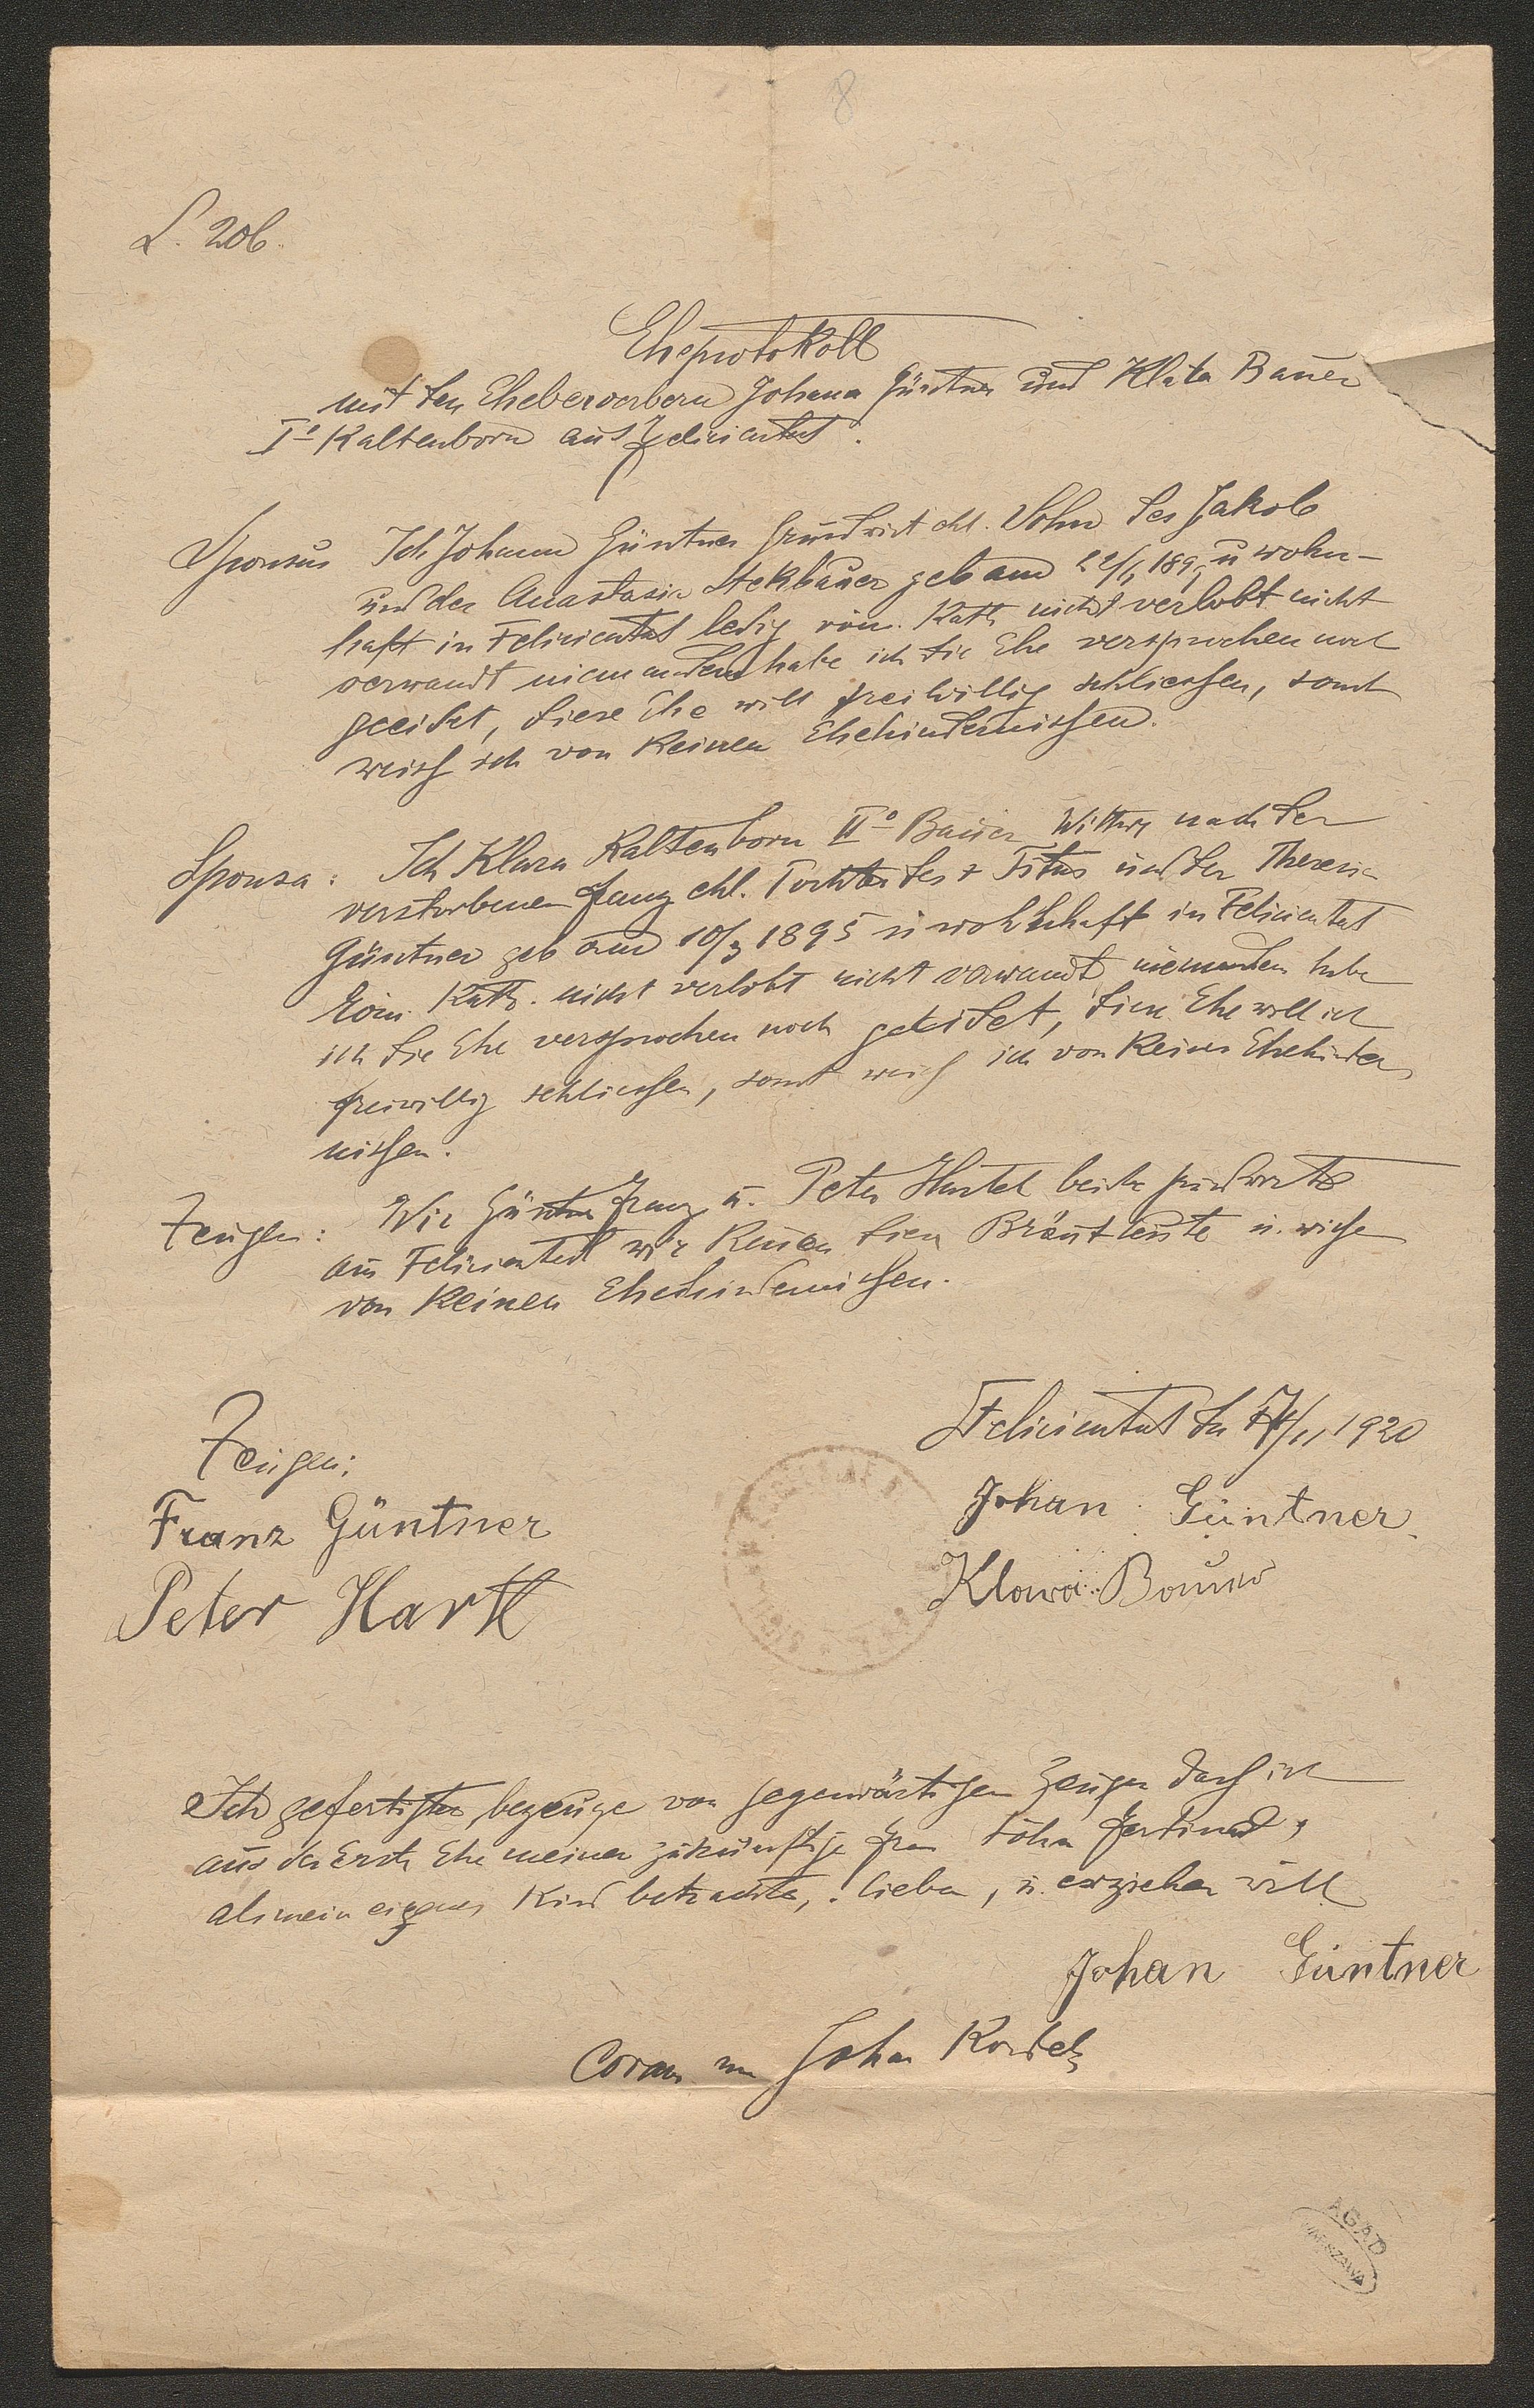 8
L. 206.
Eheprotokoll
mit den Ehebewerbern Johann Güntner und Klara Bauer
I° Kaltenborn aus Felicienthal.
Sponsus Ich Johann Güntner Grundwirt ehl. Sohn des Jakob
und der Anastasia Stekbauer geb am 22/ 189 u wohn-
haft in Felicienthal ledig röm. Kath nicht verlobt nicht
verwandt niemandem habe ich die Ehe versprochen noch
geeidet, diese Ehe will freiwillig schliessen, somit
weiss ich von Keinen Ehehindernissen.
Sponsa: Ich Klara Kaltenborn II° Bauer Wittwe nach der
verstorbenen Franz ehl. Tochter des + Titus und der Theresia
Güntner geb am 10/3 1895 u wohnhaft in Felicienthal
röm. Kath. nicht verlobt nicht verwandt niemanden habe
ich die Ehe versprochen noch geeidet, diese Ehe will ich
freiwillig schliessen, somit weiss ich von Keinen Ehehinder
nissen.
Zeugen: Wir Güntner Franz u. Peter Hartel beide Grundwirte
aus Felicienthal wir Kennen diese Brautleute u. wissen
von Keinen Ehehindernissen.
Felicienthal den /11 1920
Zeugen:
Johan Güntner
Franz Güntner
Klara Bauer
Peter Hartl
Ich gefertigter bezeuge von gegenwärtigen Zeugen dass ich
aus der Erste Ehe meiner zukünftige Frau Sohn Ferdinand,
als mein eigenes Kind betrachte, lieben, u. erziehen will
Johan Güntner
Coram me Johan
AGAD
WARSZAWA